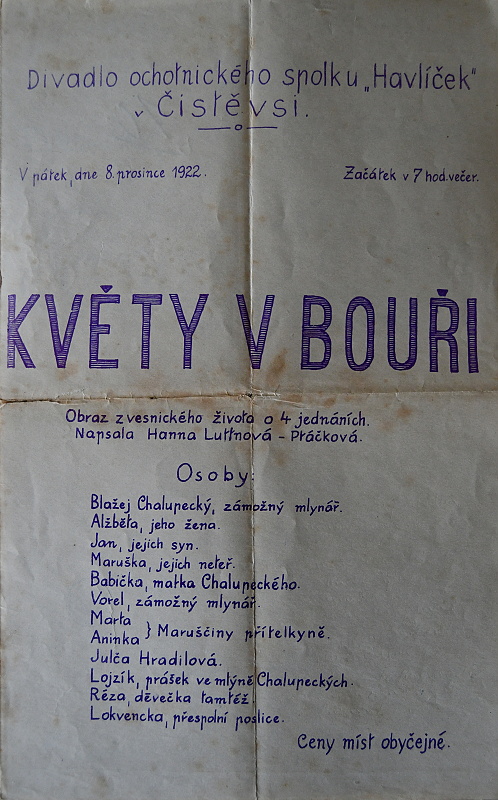 Divadlo ochotnického spolku „Havlíček"
v Čistěvsi.
V pátek, dne 8. prosince 1922.
Začátek v 7 hod. večer.
KVĚTY V BOUŘI
Obraz z vesnického života o 4 jednáních.
Napsala Hanna Luttnová - Ptáčková.
Osoby:
Blažej Chalupecký, zámožný mlynář.
Alžběta, jeho žena.
Jan, jejich syn.
Maruška, jejich neteř.
Babička, matka Chalupeckého.
Vorel, zámožný mlynář.
Marta
Aninka } Maruščiny přítelkyně.
Julča Hradilová.
Lojzík, prášek ve mlýně Chalupeckých.
Réza, děvečka tamtéž.
Lokvencka, přespolní poslice.
Ceny míst obyčejné.